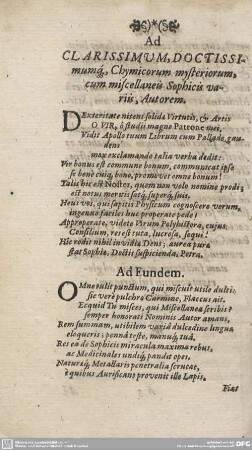 Ad
CLARISSIMUM, DOCTISSI-
mumq́, Chymicorum mysteriorum,
cum miscellaneis Sophicis va-
riis, Autorem.
DExteritate nitens solida Virtutis, & Artis
O VIR, ô studii magne Patrone mei,
Vidit Apollo tuum Librum cum Pallade, gau-
deni
max exclamando talia verba dedit:
Vir bonus est commune bonum, communicat ipse
se bene cuiq́, bono, promovet omne bonum!
Talis hic est Noster, quem non volo nomine prodi;
est notus meritis satq́, superq́, suis.
Heus vos, qui sapitis Physicum cognoscere verum,
ingenuo faciles huc properate pede!
Approperate, videte Virum Polyhistora, cujus
Consilium, res est tuta, lucrosa, soqui!
Hic rodit nihil invidiæ Dens; aurea pura
stat Sophia. Doctis suspicienda, Petra.
Ad Eundem.
OMne tulit punctum, qui miscuit utile dulci:
sic verè pulchro Carmine, Flaccus ait.
Ecquid Tu misces, qui Miscellanea scribis?
semper honorati Nominis Autor amans,
Rem summam, utilibem variâ dulcedine lingua
eloqueris; pennâ teste, manuq́, tuâ.
Res ea de Sophicis miracula maxima rebus,
ac Medicinales undiq́, pandit opes.
Naturaq́, Metallaris penetralia scrutat,
è quibus Aurificans provenit ille Lapis.
Fiat